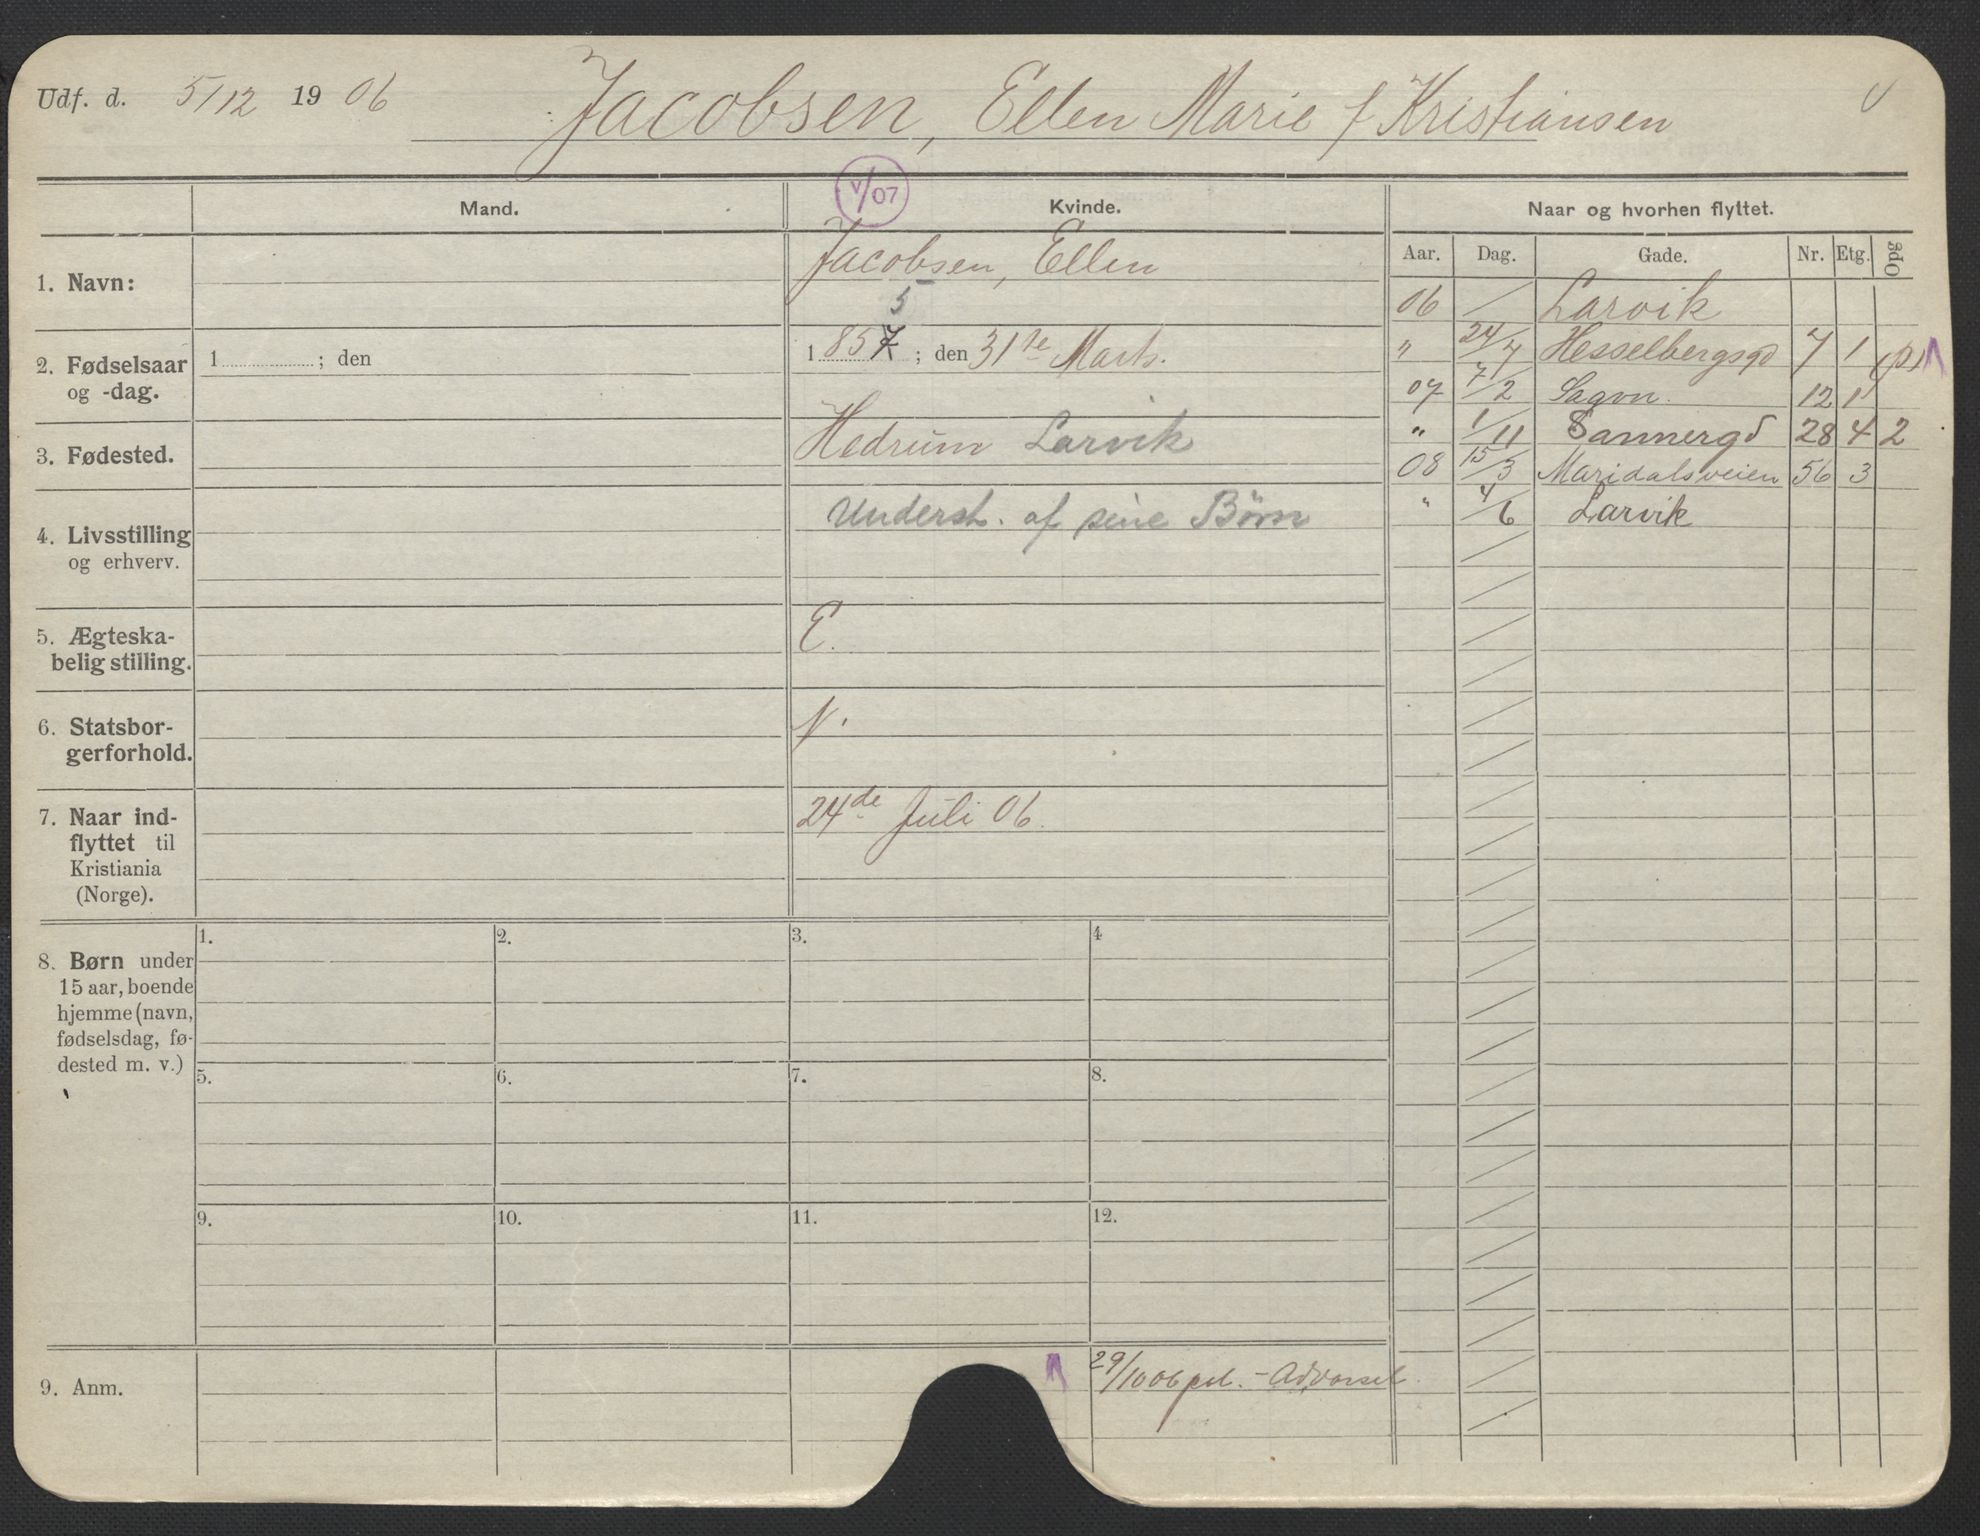 Udf. d. 5/12 1906 Jacobsen, Ellen Marie f Kristiansen
V/07
Mand. Kvinde. Naar og hvorhen flyttet.
Aar. Dag. Gade. Nr. Etg. Opg
1. Navn: Jacobsen, Ellen
2. Fødselsaar og -dag. 1 ; den
5
1857 ; den 31te Marts.
3. Fødested. Hedrum Larvik
4. Livsstilling og erhverv. Underst. af sine Børn
5. Ægteska-
belig stilling. E.
6. Statsbor-
gerforhold. N.
7. Naar ind-
flyttet til
Kristiania
(Norge).
24de Juli 06.
06 Larvik
" 24/7 Hesselbergsgd 7 1 (p)
07 7/2 Sagvn. 12 1
" 1/11 Sannergd 28 4 2
08 15/3 Maridalsveien 56 3
" 4/6 Larvik
8. Børn under
15 aar, boende
hjemme (navn,
fødselsdag, fø-
dested m. v.)
1. 2. 3. 4
5. 6. 7. 8.
9. 10. 11. 12.
9. Anm. 29/10 06 pol. - Advarsel.